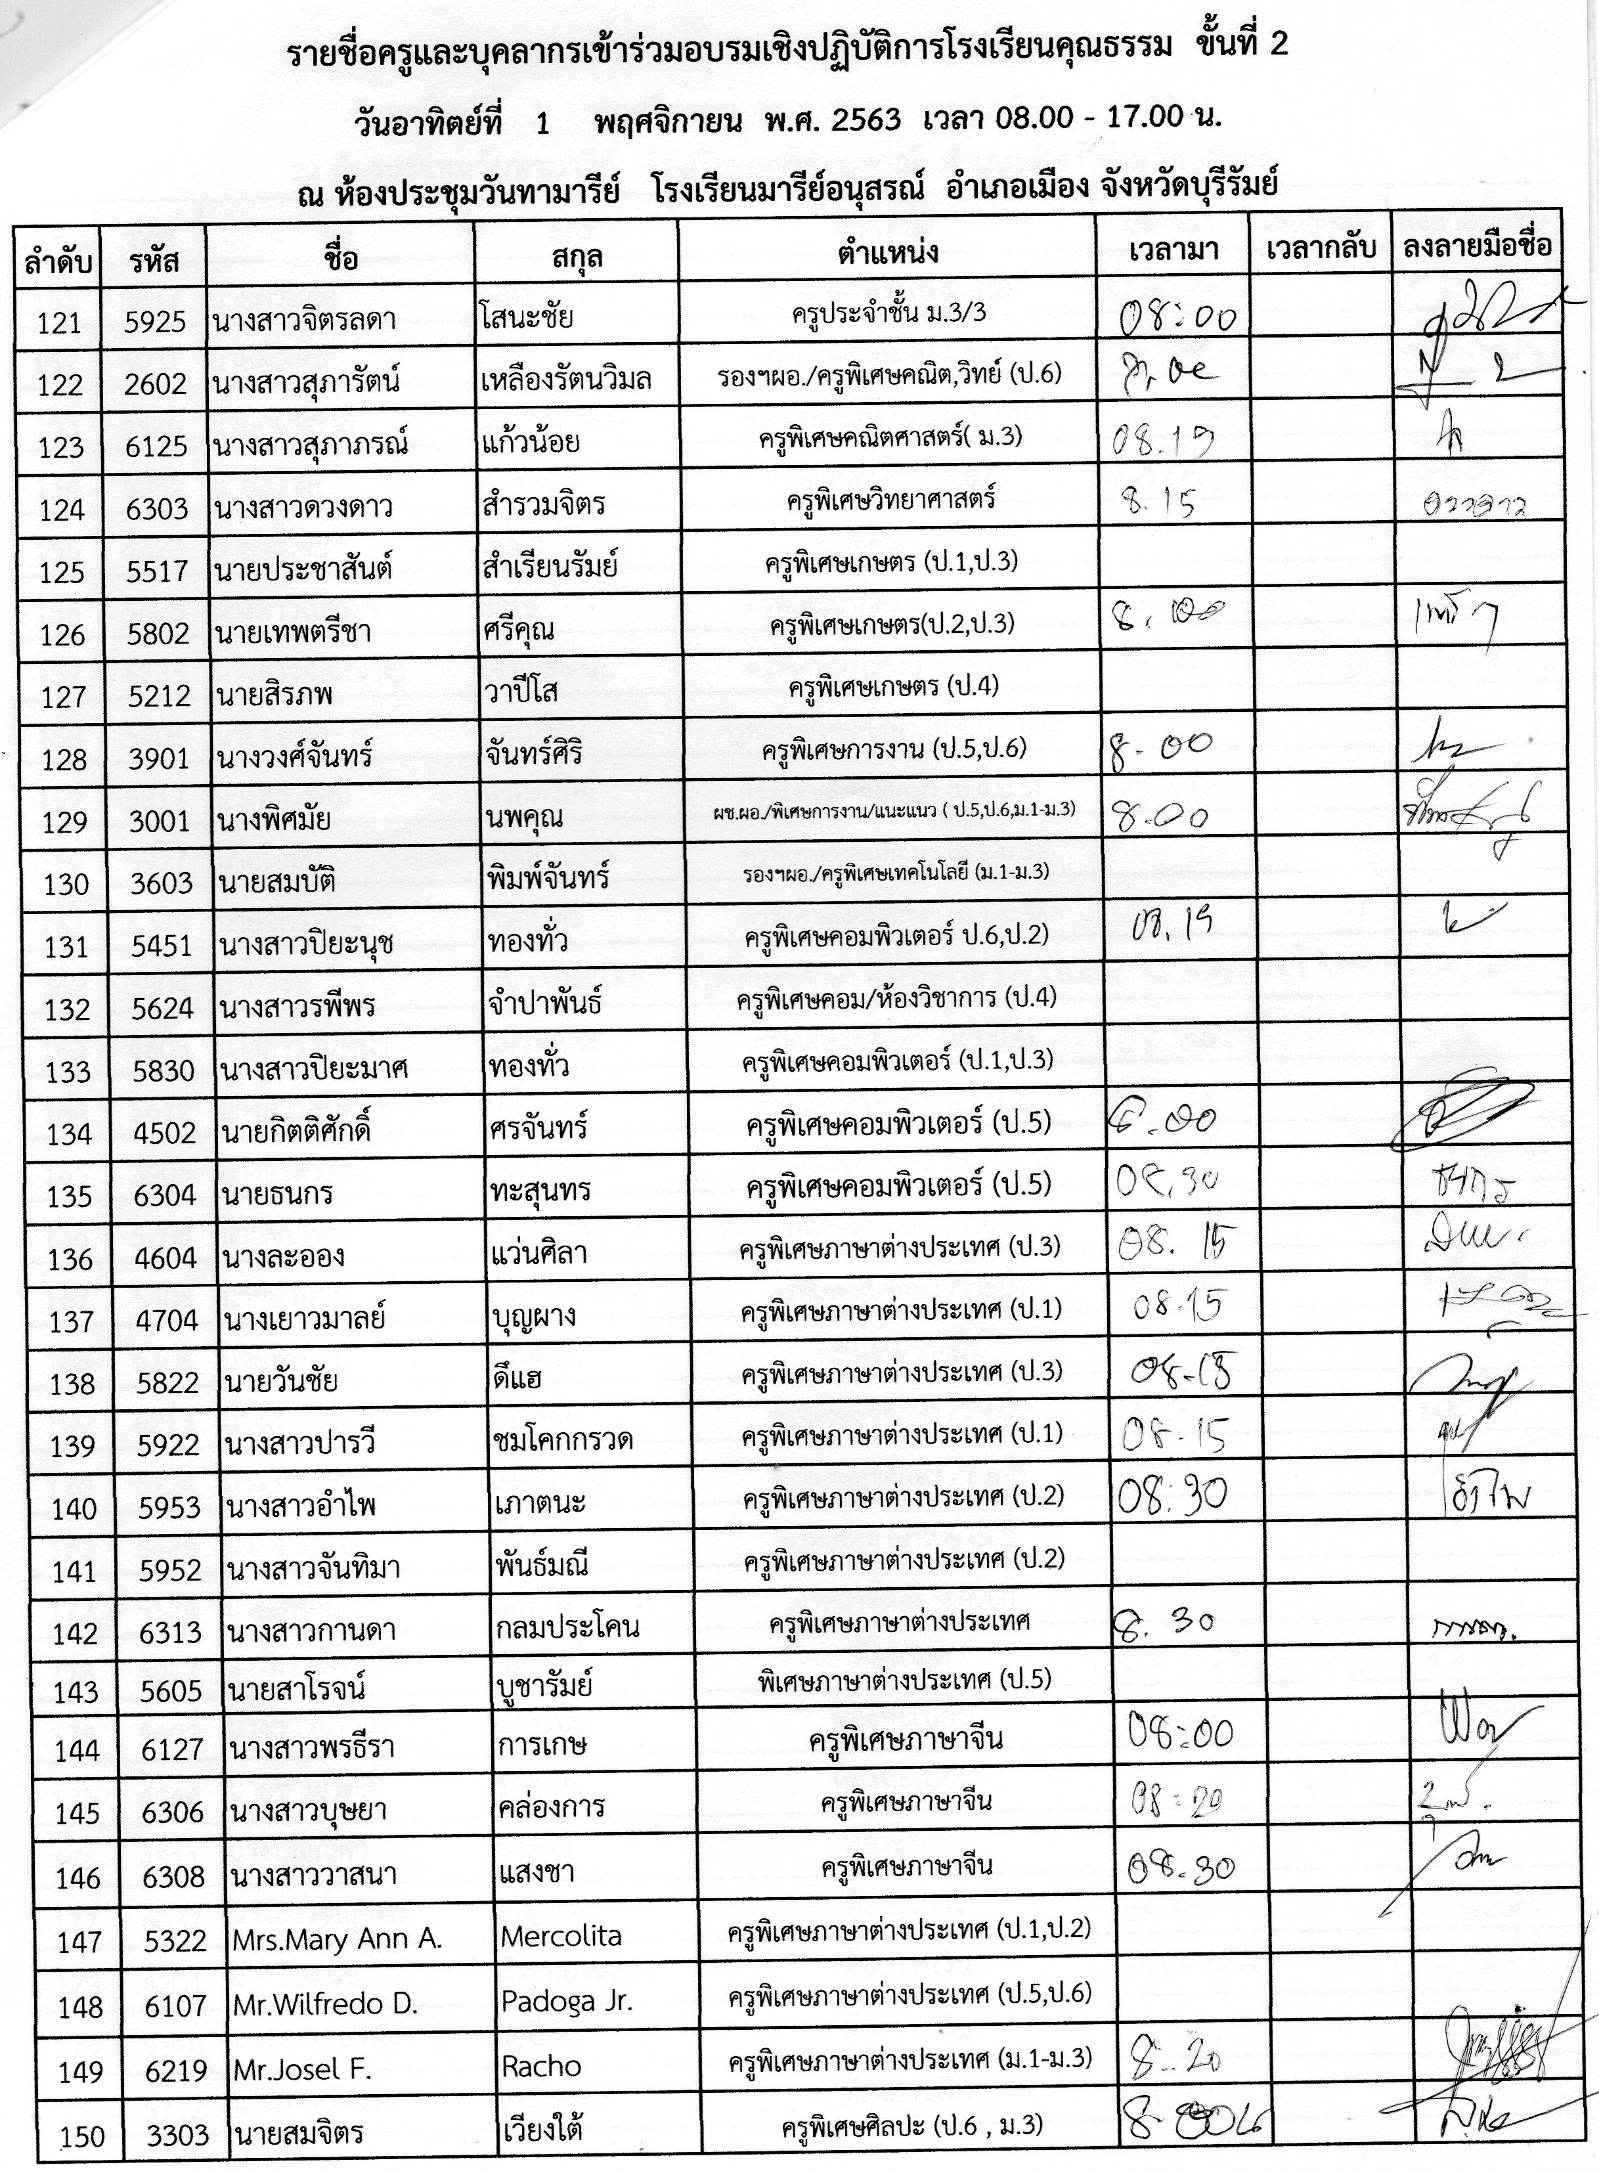 รายชื่อครูและบุคลากรเข้าร่วมอบรมเชิงปฏิบัติการโรงเรียนคุณธรรม ขั้นที่ 2
วันอาทิตย์ที่ 1 พฤศจิกายน พ.ศ. 2563 เวลา 08.00 - 17.00 น.
ณ ห้องประชุมวันทามารีย์ โรงเรียนมารีย์อนุสรณ์ อำเภอเมือง จังหวัดบุรีรัมย์
ลำดับ รหัส ชื่อ สกุล ตำแหน่ง เวลามา เวลากลับ ลงลายมือชื่อ
121 5925 นางสาวจิตรลดา โสนะชัย ครูประจำชั้น ม.3/3 08:00
122 2602 นางสาวสุภารัตน์ เหลืองรัตนวิมล รองฯผอ./ครูพิเศษคณิต,วิทย์ (ป.6)
123 6125 นางสาวสุภาภรณ์ แก้วน้อย ครูพิเศษคณิตศาสตร์( ม.3) 08.19
124 6303 นางสาวดวงดาว สำรวมจิตร ครูพิเศษวิทยาศาสตร์ 8.15 ดวงดาว
125 5517 นายประชาสันต์ สำเรียนรัมย์ ครูพิเศษเกษตร (ป.1,ป.3)
126 5802 นายเทพตรีชา ศรีคุณ ครูพิเศษเกษตร(ป.2,ป.3)
127 5212 นายสิรภพ วาปีโส ครูพิเศษเกษตร (ป.4)
128 3901 นางวงศ์จันทร์ จันทร์ศิริ ครูพิเศษการงาน (ป.5,ป.6) 8.00
129 3001 นางพิศมัย นพคุณ ผช.ผอ./พิเศษการงาน/แนะแนว ( ป.5,ป.6,ม.1-ม.3) 8.00
130 3603 นายสมบัติ พิมพ์จันทร์ รองฯผอ./ครูพิเศษเทคโนโลยี (ม.1-ม.3)
131 5451 นางสาวปิยะนุช ทองทั่ว ครูพิเศษคอมพิวเตอร์ ป.6,ป.2) 08.19
132 5624 นางสาวรพีพร จำปาพันธ์ ครูพิเศษคอม/ห้องวิชาการ (ป.4)
133 5830 นางสาวปิยะมาศ ทองทั่ว ครูพิเศษคอมพิวเตอร์ (ป.1,ป.3)
134 4502 นายกิตติศักดิ์ ศรจันทร์ ครูพิเศษคอมพิวเตอร์ (ป.5)
135 6304 นายธนกร ทะสุนทร ครูพิเศษคอมพิวเตอร์ (ป.5) 08.30 ธนกร
136 4604 นางละออง แว่นศิลา ครูพิเศษภาษาต่างประเทศ (ป.3) 08.15
137 4704 นางเยาวมาลย์ บุญผาง ครูพิเศษภาษาต่างประเทศ (ป.1) 08.15
138 5822 นายวันชัย ดีแฮ ครูพิเศษภาษาต่างประเทศ (ป.3) 08-15
139 5922 นางสาวปารวี ชมโคกกรวด ครูพิเศษภาษาต่างประเทศ (ป.1) 08-15
140 5953 นางสาวอำไพ เภาตนะ ครูพิเศษภาษาต่างประเทศ (ป.2) 08:30 อำไพ
141 5952 นางสาวจันทิมา พันธ์มณี ครูพิเศษภาษาต่างประเทศ (ป.2)
142 6313 นางสาวกานดา กลมประโคน ครูพิเศษภาษาต่างประเทศ 8.30 กานดา.
143 5605 นายสาโรจน์ บูชารัมย์ พิเศษภาษาต่างประเทศ (ป.5)
144 6127 นางสาวพรธีรา การเกษ ครูพิเศษภาษาจีน 08:00
145 6306 นางสาวบุษยา คล่องการ ครูพิเศษภาษาจีน 08:20
146 6308 นางสาววาสนา แสงชา ครูพิเศษภาษาจีน 08.30
147 5322 Mrs.Mary Ann A. Mercolita ครูพิเศษภาษาต่างประเทศ (ป.1,ป.2)
148 6107 Mr.Wilfredo D. Padoga Jr. ครูพิเศษภาษาต่างประเทศ (ป.5,ป.6)
149 6219 Mr.Josel F. Racho ครูพิเศษภาษาต่างประเทศ (ม.1-ม.3) 8.20
150 3303 นายสมจิตร เวียงใต้ ครูพิเศษศิลปะ (ป.6 , ม.3)